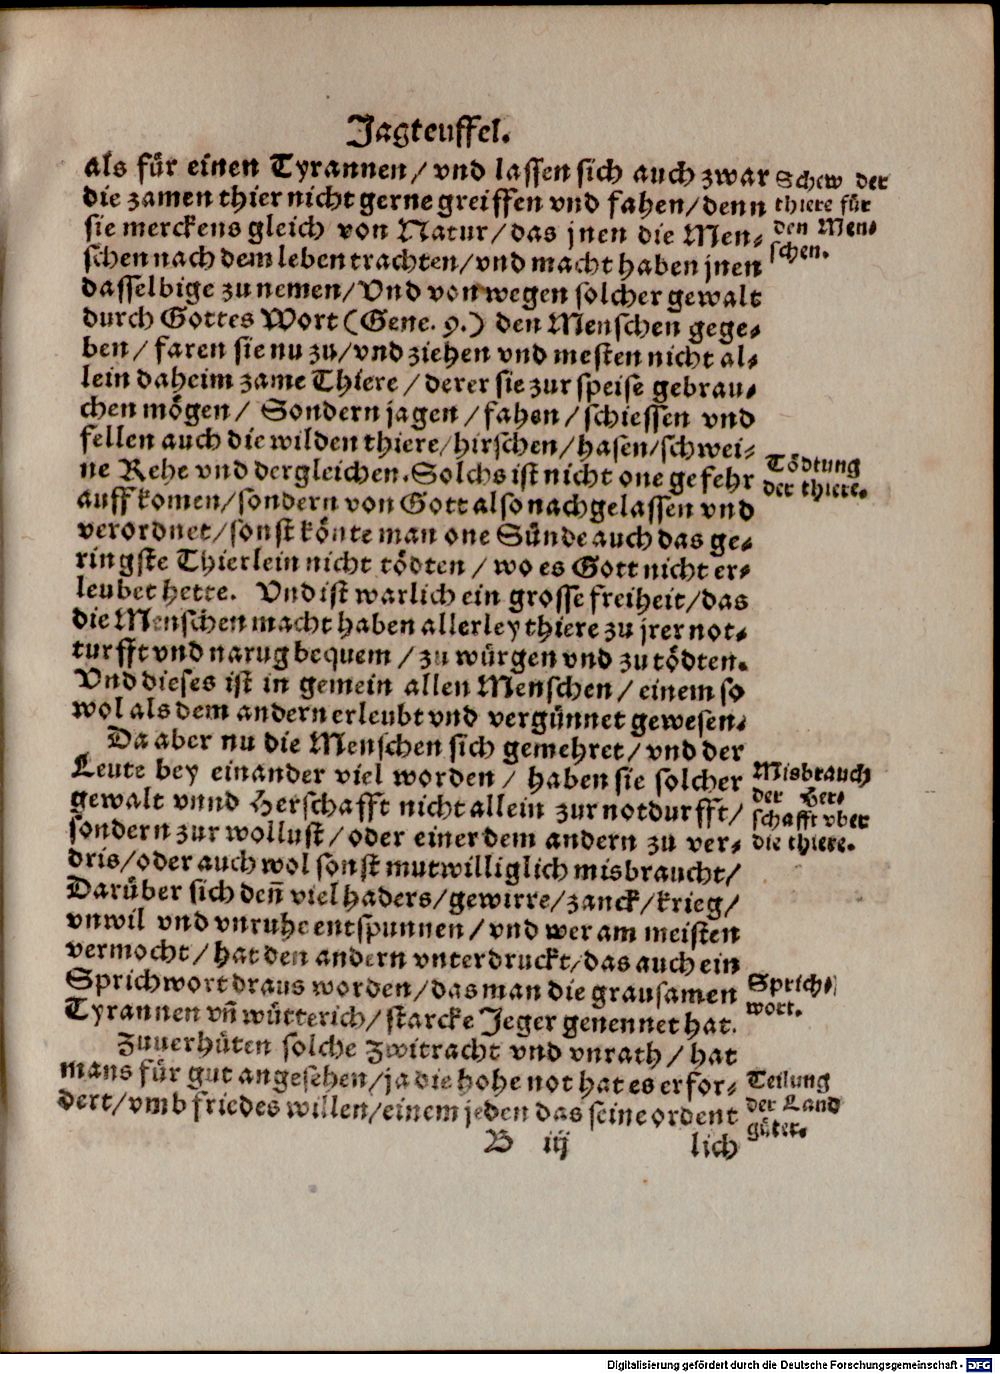 Jagteuffel.
als für einen Tyrannen / vnd lassen sich auch zwar
die zamen thier nicht gerne greiffen vnd fahen / denn
sie merckens gleich von Natur / das jnen die Men-
schen nach dem leben trachten / vnd macht haben jnen
dasselbige zu nemen / Vnd von wegen solcher gewalt
durch Gottes Wort (Gene. 9.) den Menschen gege-
ben / faren sie nu zu / vnd ziehen vnd mesten nicht al-
lein daheim zame Thiere / derer sie zur speise gebrau-
chen mögen / Sondern jagen / fahen / schiessen vnd
fellen auch die wilden thiere / hirschen / hasen / schwei-
ne Rehe vnd dergleichen. Solchs ist nicht one gefehr
auff komen / sondern von Gott also nachgelassen vnd
verordnet / sonst könte man one Sünde auch das ge-
ringste Thierlein nicht tödten / wo es Gott nicht er-
leubet hette. Vnd ist warlich ein grosse freiheit / das
die Menschen macht haben allerley thiere zu jrer not-
turfft vnd narug bequem / zu würgen vnd zu tödten.
Vnd dieses ist in gemein allen Menschen / einem so
wol als dem andern erleubt vnd vergünnet gewesen.
Da aber nu die Menschen sich gemehret / vnd der
Leute bey einander viel worden / haben sie solcher
gewalt vnnd Herschafft nicht allein zur notdurfft /
sondern zur wollust / oder einer dem andern zu ver-
dris / oder auch wol sonst mutwilliglich misbraucht /
Darüber sich deñ viel haders / gewirre / zanck / krieg /
vnwil vnd vnruhe entspunnen / vnd wer am meisten
vermocht / hat den andern vnterdruckt / das auch ein
Sprichwort draus worden / das man die grausamen
Tyrannen vñ wütterich / starcke Jeger genennet hat.
Zuuerhüten solche Zwitracht vnd vnrath / hat
mans für gut angesehen / ja die hohe not hat es erfor-
dert / vmb friedes willen / einem jeden das seine ordent
B iij lich
Schew der
thiere für
den Men-
schen.
Tödtung
der thiere.
Misbrauch
der Her-
schafft vber
die thiere.
Sprich-
wort.
Teilung
der Land
güter.
Digitalisierung gefördert durch die Deutsche Forschungsgemeinschaft - DFG